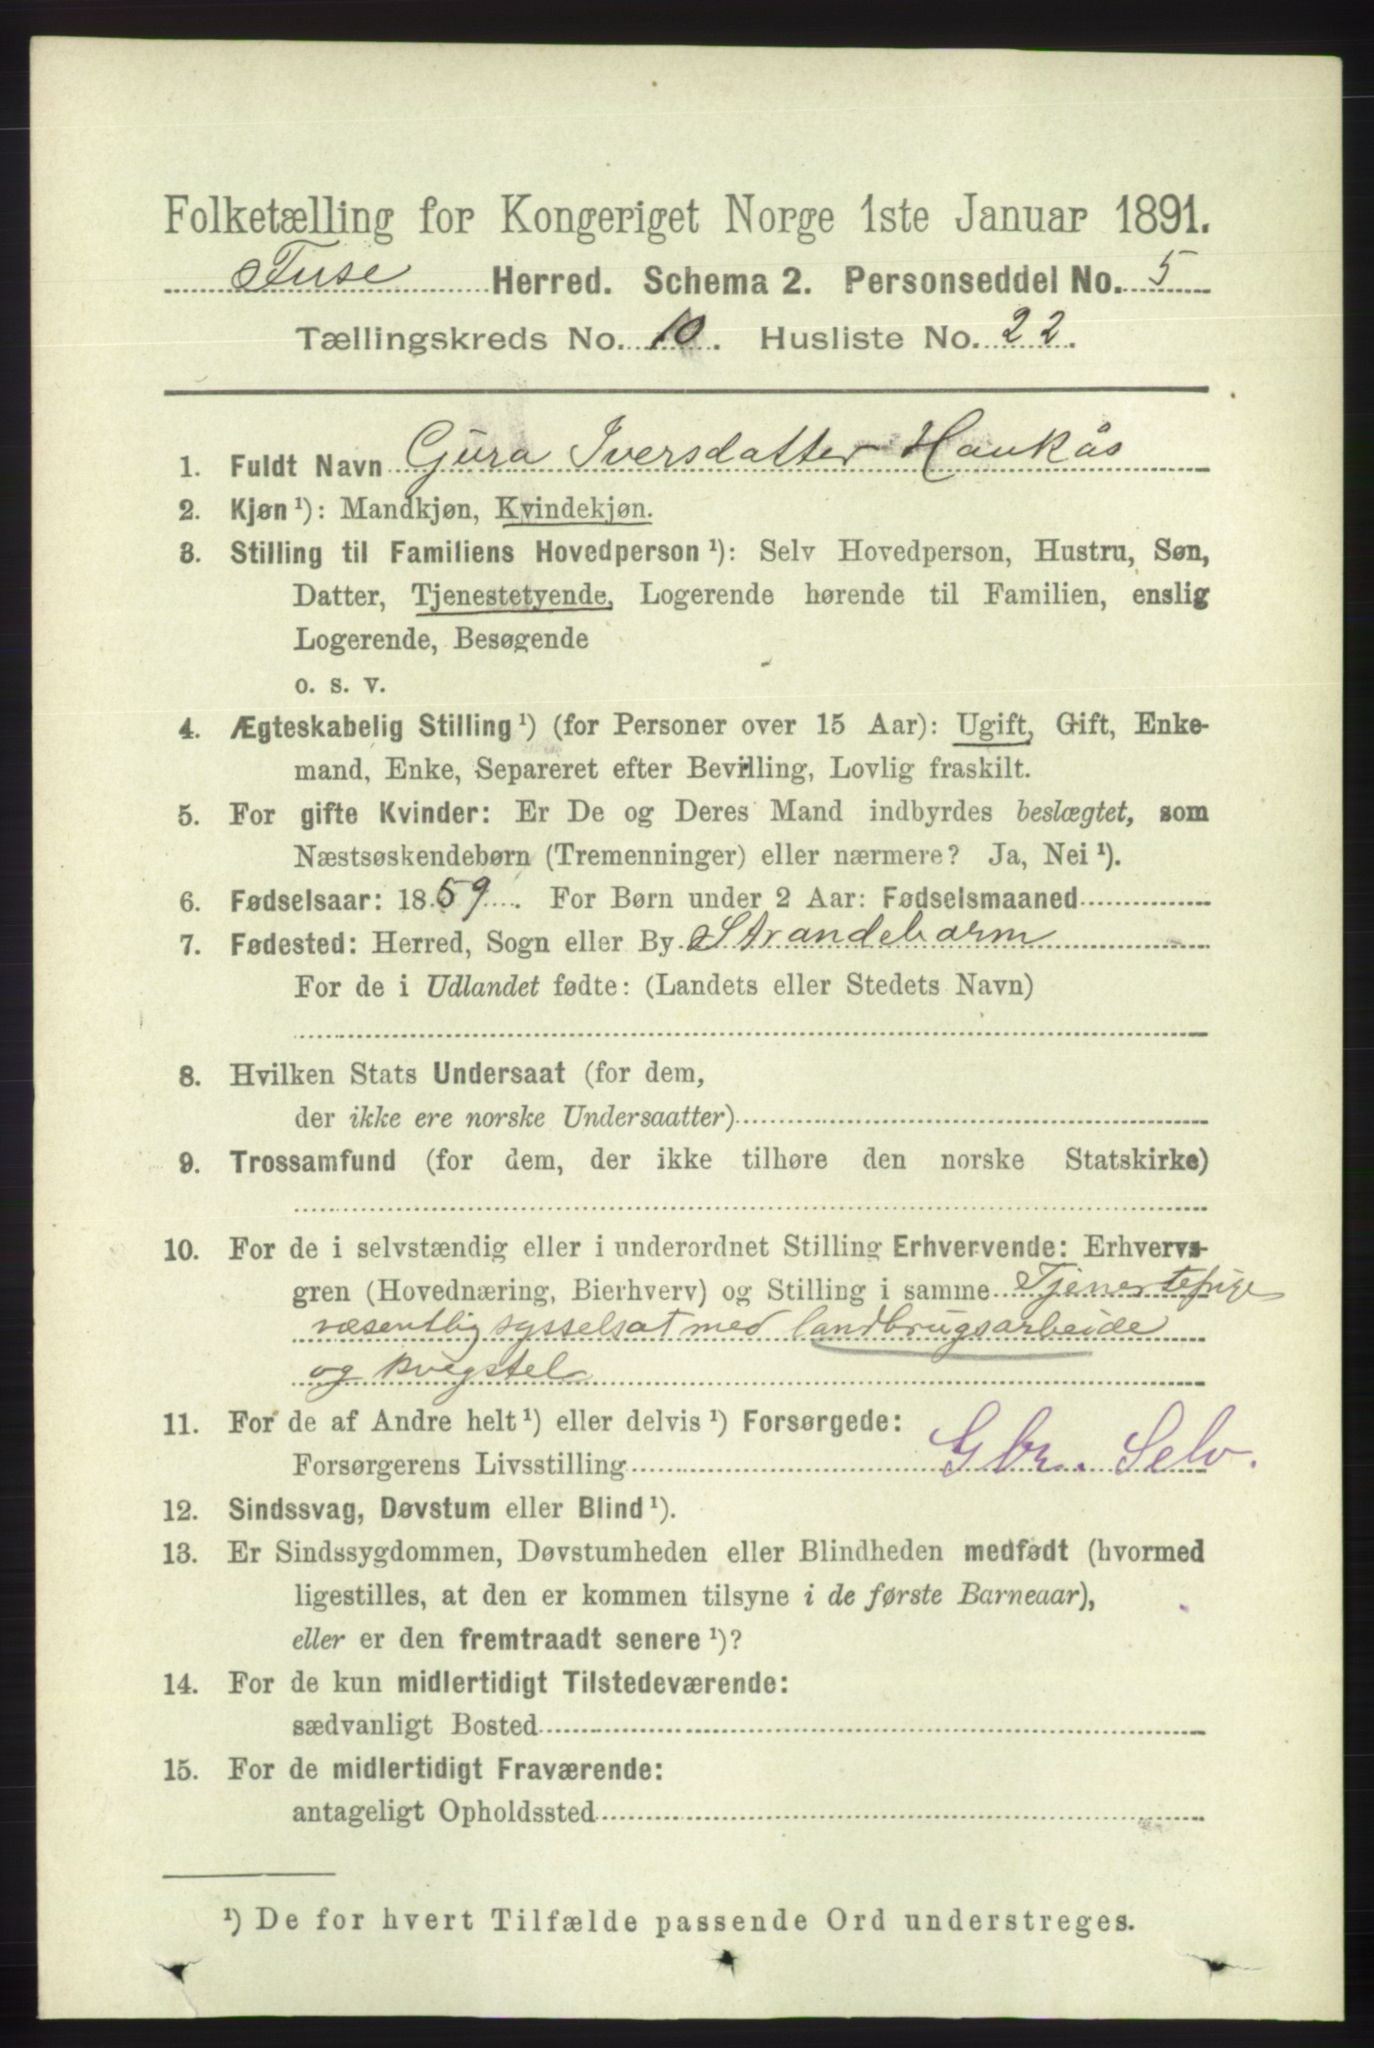 Folketælling for Kongeriget Norge 1ste Januar 1891.
Fuse Herred. Schema 2. Personseddel No. 5
Tællingskreds No. 10. Husliste No. 22.
1. Fuldt Navn Gjura Iversdatter Haukås
2. Kjøn¹): Mandkjøn, Kvindekjøn.
3. Stilling til Familiens Hovedperson¹): Selv Hovedperson, Hustru, Søn,
Datter, Tjenestetyende, Logerende hørende til Familien, enslig
Logerende, Besøgende
o. s. v.
4. Ægteskabelig Stilling¹) (for Personer over 15 Aar): Ugift, Gift, Enke-
mand, Enke, Separeret efter Bevilling, Lovlig fraskilt.
5. For gifte Kvinder: Er De og Deres Mand indbyrdes beslægtet, som
Næstsøskendebørn (Tremenninger) eller nærmere? Ja, Nei¹).
6. Fødselsaar: 1859. For Børn under 2 Aar: Fødselsmaaned
7. Fødested: Herred, Sogn eller By Strandebarm
For de i Udlandet fødte: (Landets eller Stedets Navn)
8. Hvilken Stats Undersaat (for dem,
der ikke ere norske Undersaatter)
9. Trossamfund (for dem, der ikke tilhøre den norske Statskirke)
10. For de i selvstændig eller i underordnet Stilling Erhvervende: Erhvervs-
gren (Hovednæring, Bierhverv) og Stilling i samme Tjenestepige
væsentlig sysselsat med landbrugsarbeide
og kvegstel
11. For de af Andre helt¹) eller delvis¹) Forsørgede:
Forsørgerens Livsstilling Gbr. Selv.
12. Sindssvag, Døvstum eller Blind¹).
13. Er Sindssygdommen, Døvstumheden eller Blindheden medfødt (hvormed
ligestilles, at den er kommen tilsyne i de første Barneaar),
eller er den fremtraadt senere¹)?
14. For de kun midlertidigt Tilstedeværende:
sædvanligt Bosted
15. For de midlertidigt Fraværende:
antageligt Opholdssted
¹) De for hvert Tilfælde passende Ord understreges.